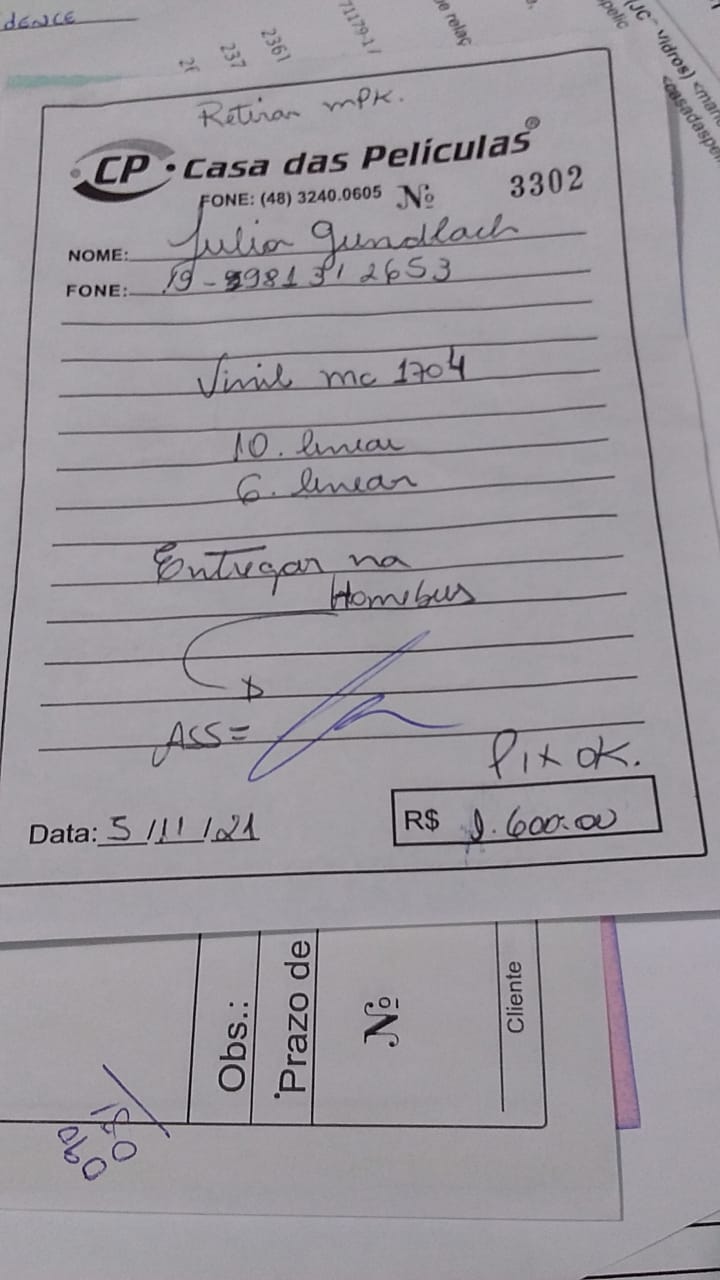 dence
2361
237
71179-1/
Retirar mpk.
CP • Casa das Películas®
FONE: (48) 3240.0605 Nº 3302
NOME: Julia Gundlach
FONE: 19-99813 2653
Vinil mc 1704
10. linear
6. linear
Entregar na
Homebus
ASS=
Pix OK.
Data: 5/11/21 R$ 1.600.00
Obs.:
Prazo de
Nº
Cliente